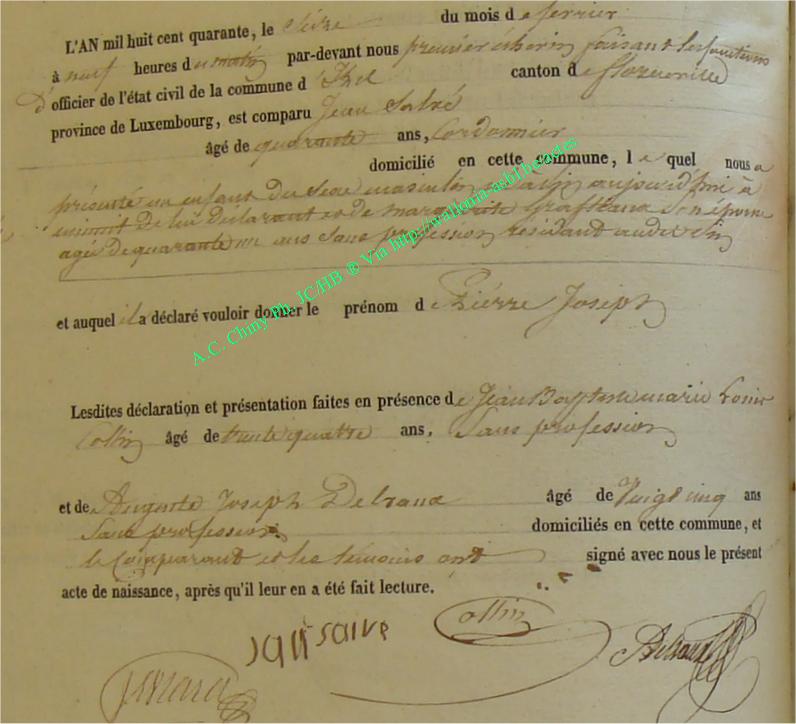 L'AN mil huit cent quarante, le Seize du mois de fevrier
à neuf heures du matin par-devant nous premier échevin faisant les fonctions
d'officier de l'état civil de la commune d' canton de florenville
province de Luxembourg, est comparu Jean
âgé de quarante ans, Cordonnier
domicilié en cette commune, lequel nous a
présenté un enfant du sexe masculin aujourd'hui à
de lui déclarant et de marguerite Son épouse
agée de quarante un ans Sans profession résidant audit
et auquel il a déclaré vouloir donner le prénom de Piérre Joseph
Lesdites déclaration et présentation faites en présence de Jean Baptiste marie Louis
Collin âgé de trente quatre ans, Sans profession
et de Auguste Joseph âgé de Vingt cinq ans
Sans profession domiciliés en cette commune, et
le Comparant et les témoins ont signé avec nous le présent
acte de naissance, après qu'il leur en a été fait lecture.
Collin
A.C. Chiny Ph. JC/HB ® Via http://wallonia-asbl.be/actes